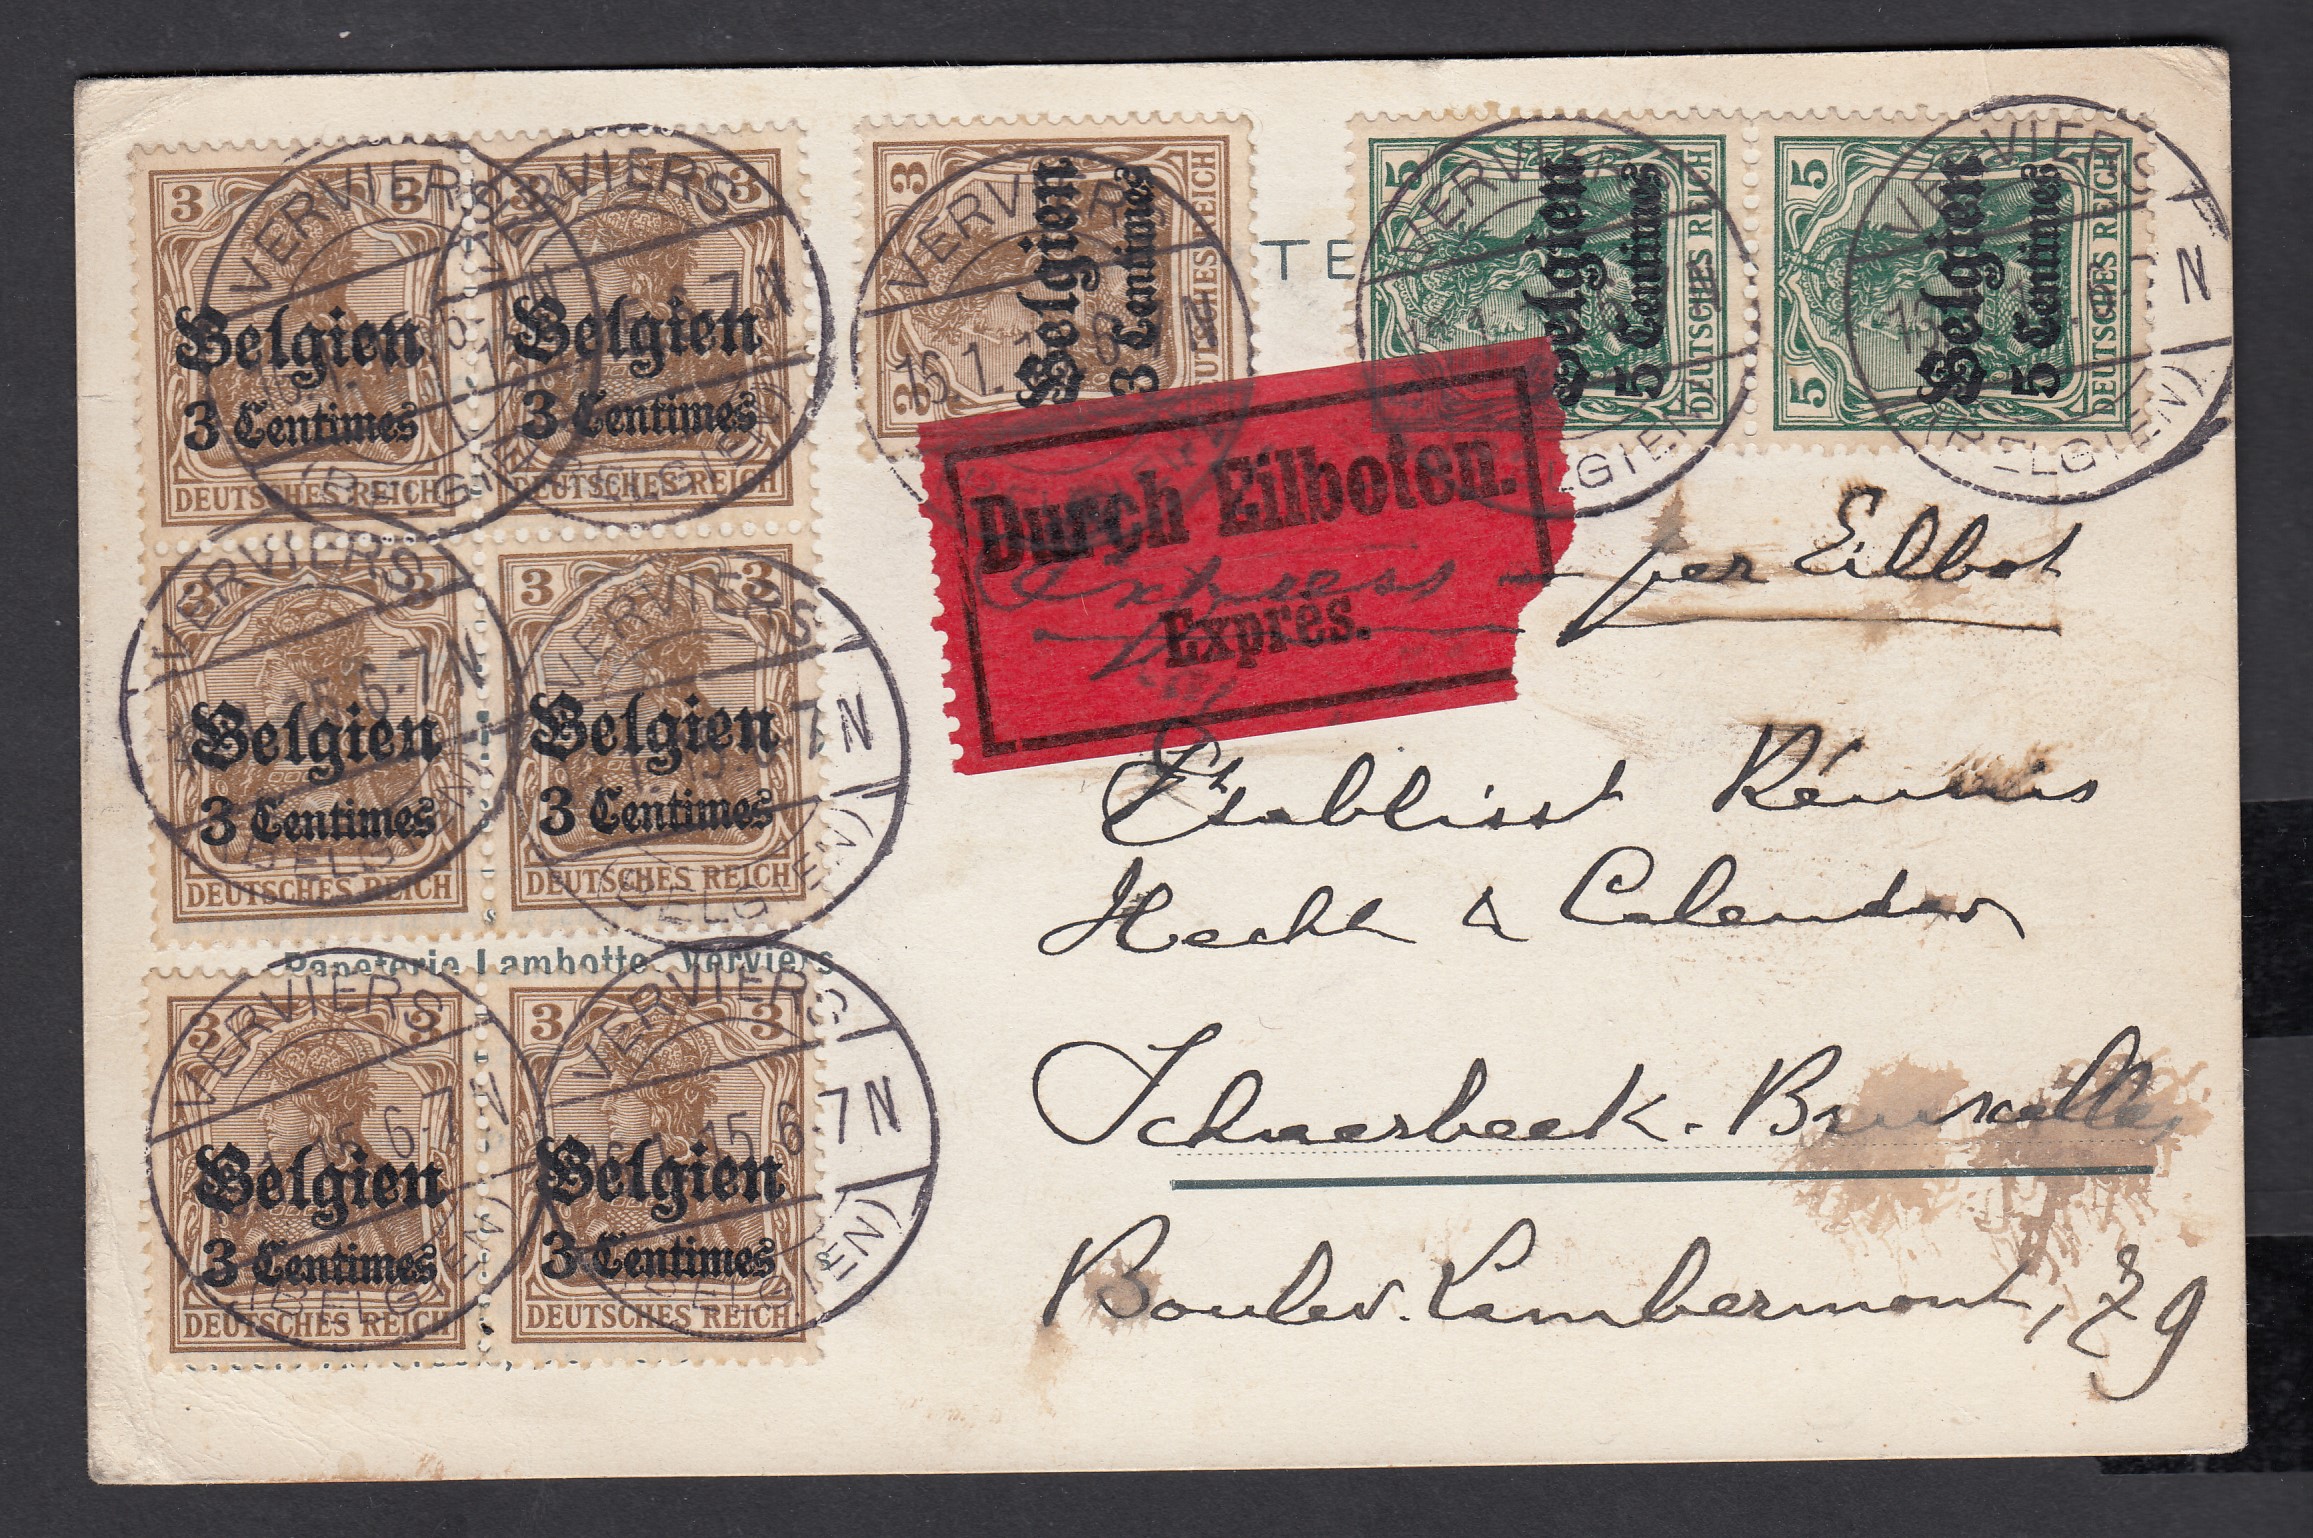 3 3 Belgien 3 Centimes DEUTSCHES REICH
3 3 Belgien 3 Centimes DEUTSCHES REICH
3 3 Belgien 3 Centimes DEUTSCHES REICH
5 5 Belgien 5 Centimes DEUTSCHES REICH
5 5 Belgien 5 Centimes DEUTSCHES REICH
VERVIERS 15.1. (BELGIEN)
TE
Durch Eilboten.
Express
Expres.
per Eilbot
3 3 Belgien 3 Centimes DEUTSCHES REICH
3 3 Belgien 3 Centimes DEUTSCHES REICH
VERVIERS 15.6-7 N (BELGIEN)
Etablisst Réunis
Hecht & Calendar
Papeterie Lambotte, Verviers
3 3 Belgien 3 Centimes DEUTSCHES REICH
3 3 Belgien 3 Centimes DEUTSCHES REICH
VERVIERS 1.15.6-7 N (BELGIEN)
Schaerbeek-Bruxelles
Boulev. Lambermont, 79